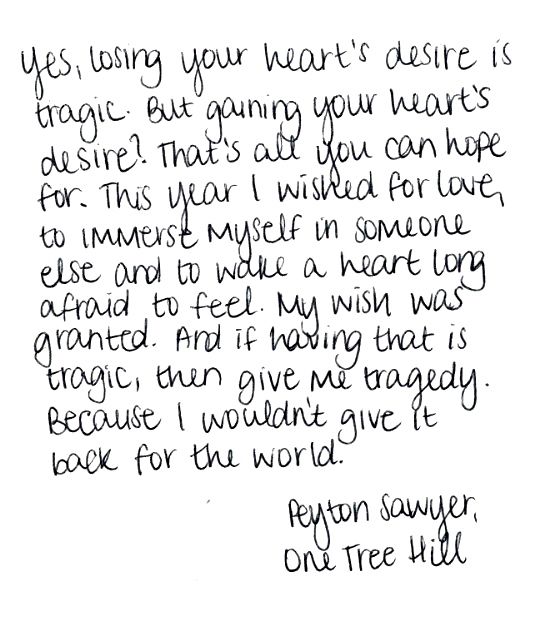 Yes, losing your heart's desire is
tragic. But gaining your heart's
desire? That's all you can hope
for. This year I wished for love,
to immerse myself in someone
else and to wake a heart long
afraid to feel. My wish was
granted. And if having that is
tragic, then give me tragedy.
Because I wouldn't give it
back for the world.
Peyton Sawyer,
One Tree Hill